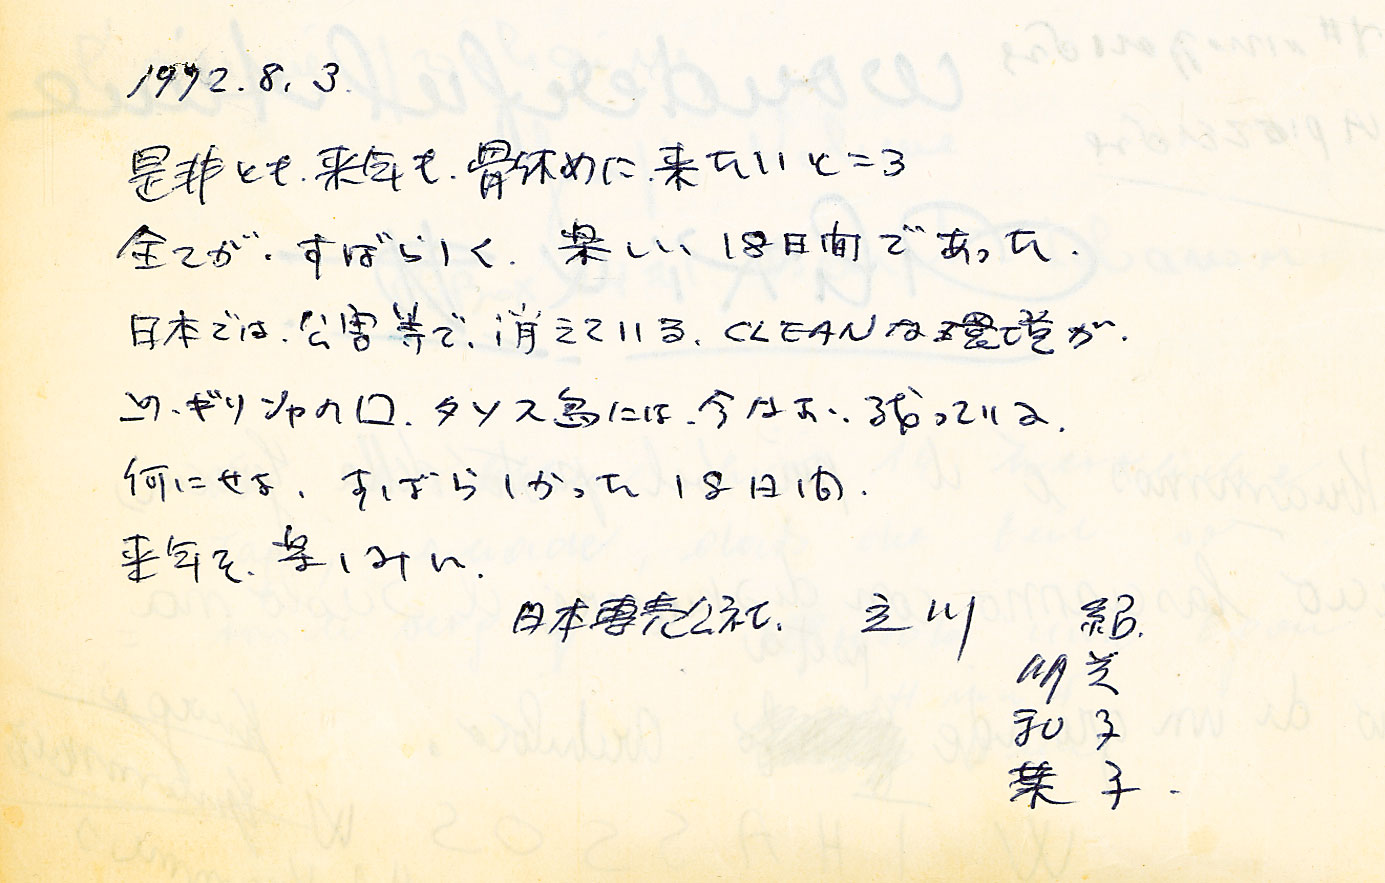 1992.8.3.
是非とも、来年も、骨休めに、来たいところ
全てが、すばらしく、楽しい18日間であった。
日本では、公害等で、消えている、CLEANな環境が、
ギリシャの タソス島には、今なお、残っている。
何にせよ、すばらしかった18日間。
来年を、楽しみに。
日本専売公社、立川 紹
明美
和子
葉子.